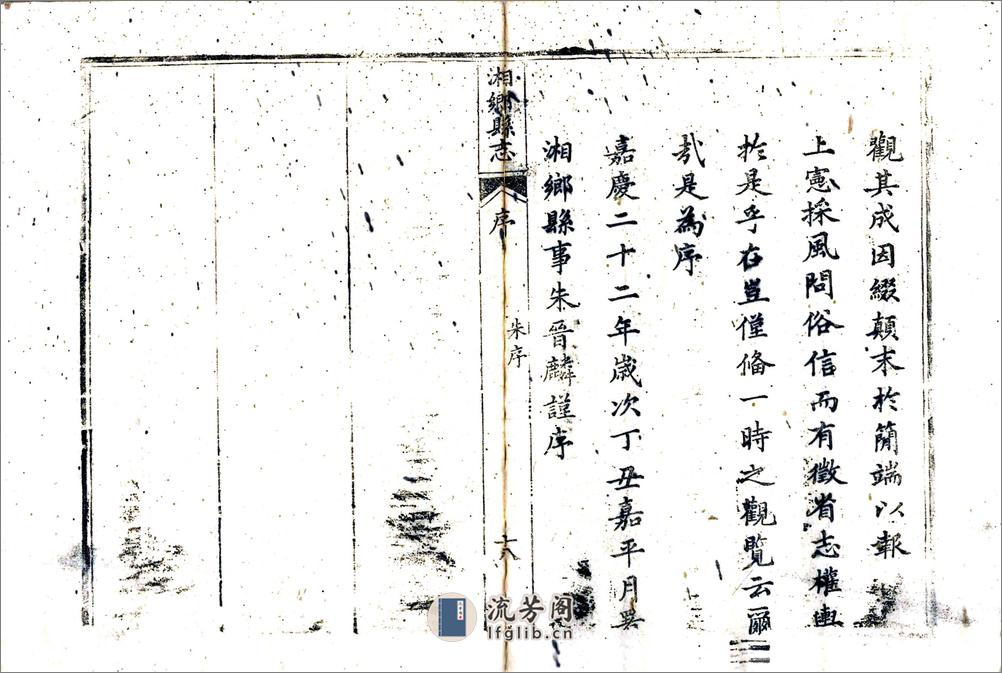 觀其成因綴顛末於簡端以報
上憲採風問俗信而有徵省志權輿
於是乎在豈僅備一時之觀覽云爾
哉是為序
嘉慶二十二年歲次丁丑嘉平月
湘鄉縣事朱晉麟謹序
湘鄉縣志
序
朱序
十八
流芳阁
lfglib.cn